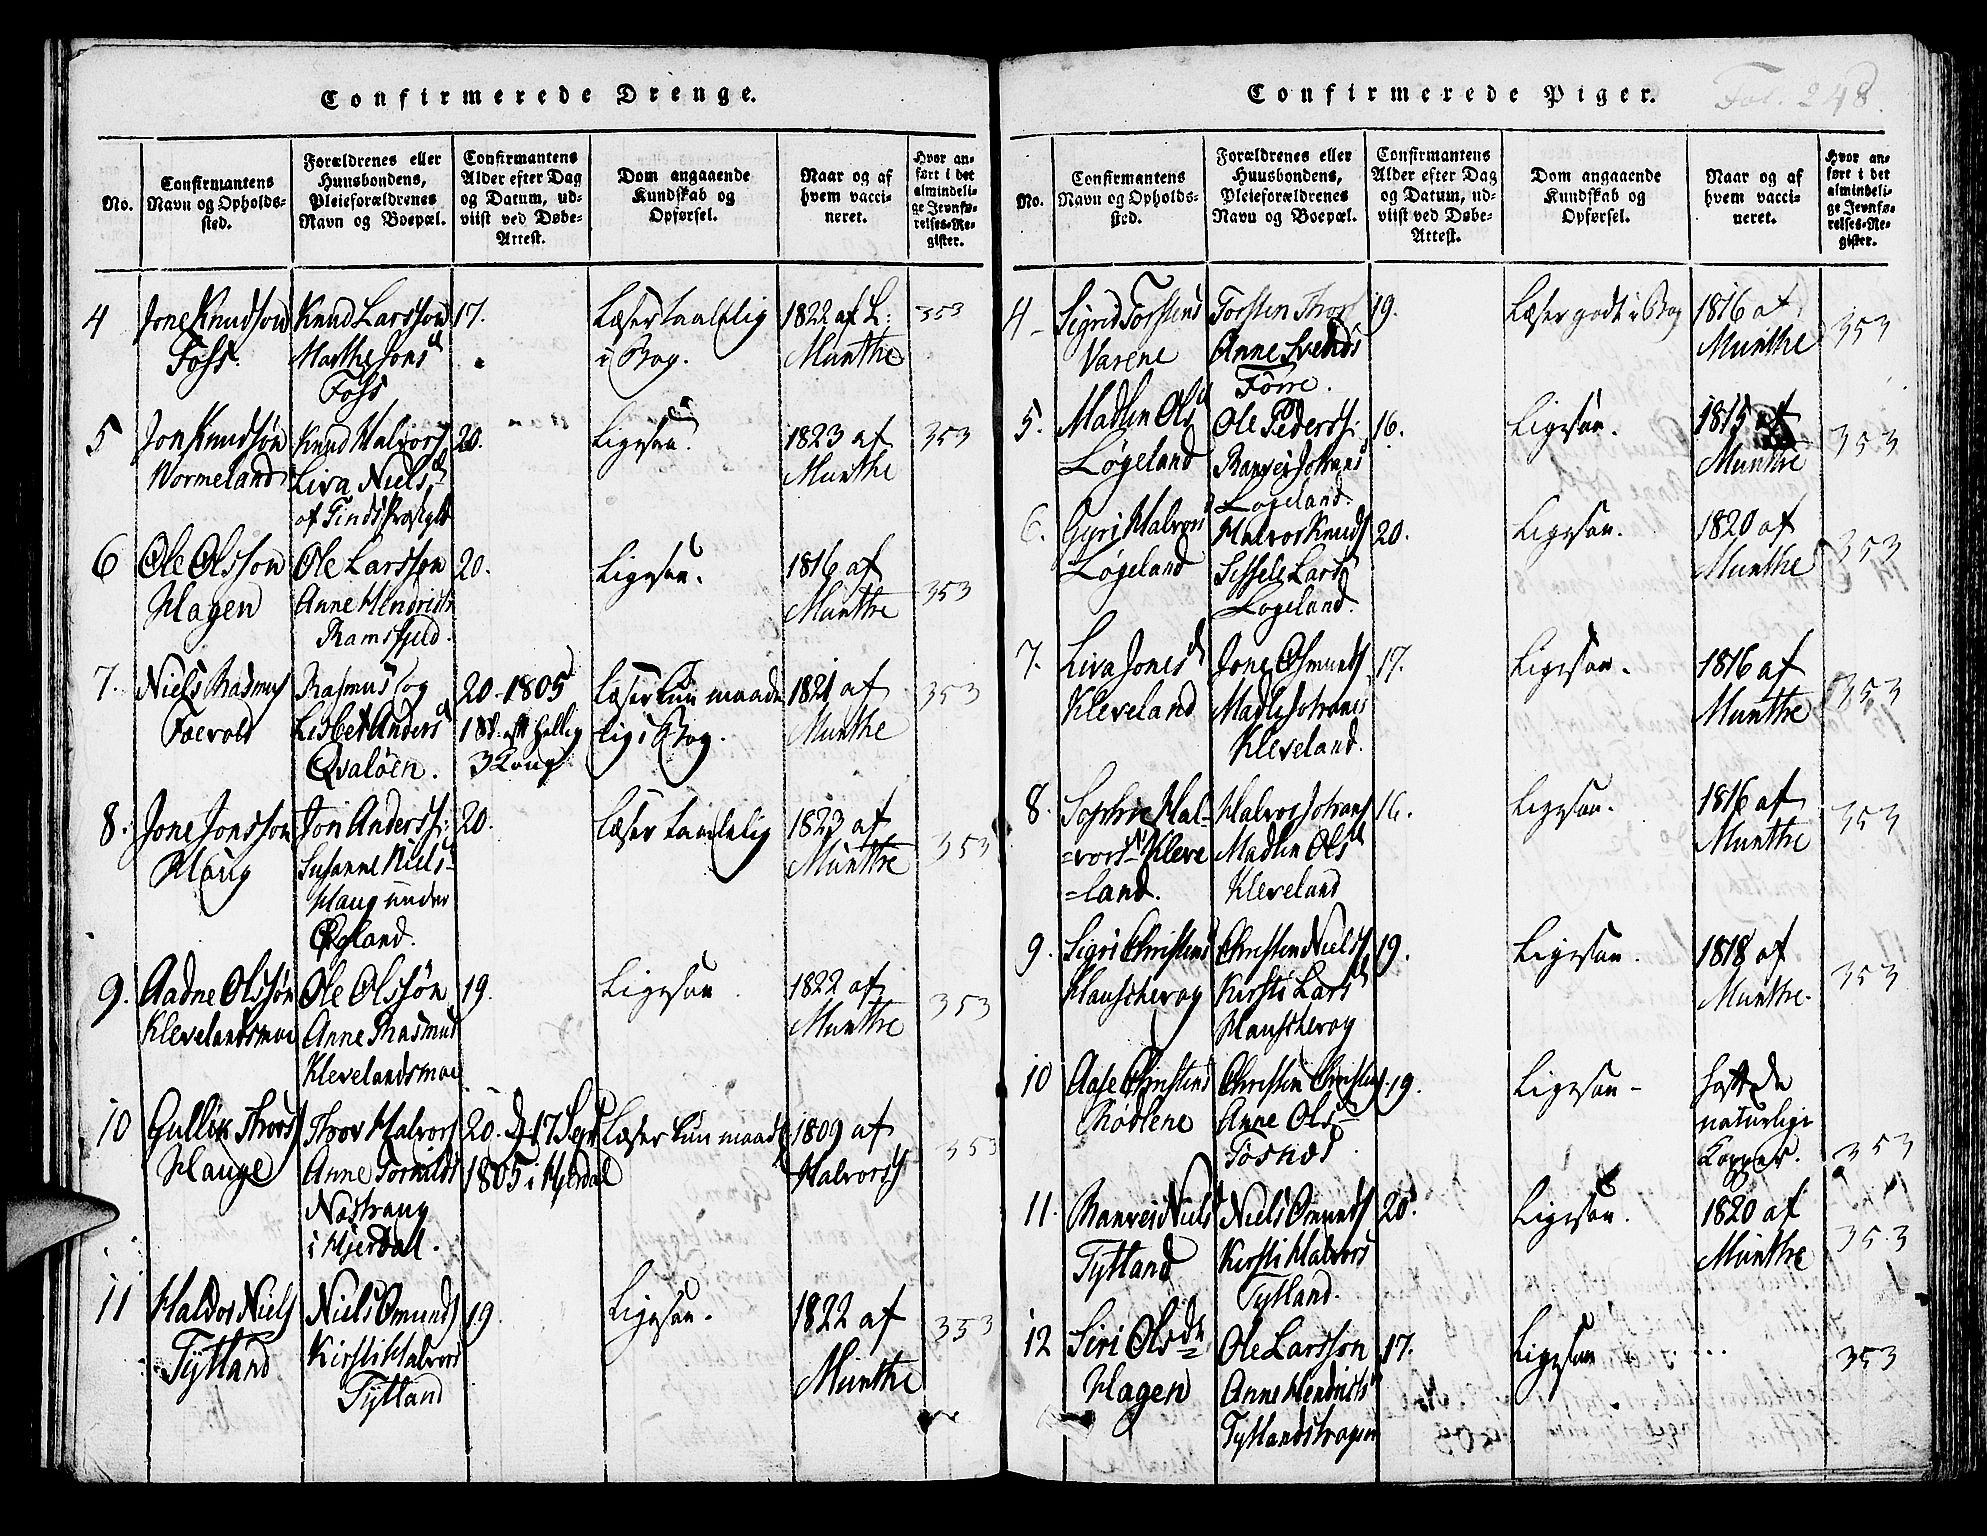 Confirmerede Drenge.
No.
Confirmantens
Navn og Opholds-
sted.
Forældrenes eller
Huusbondens,
Pleieforældrenes
Navn og Boepæl.
Confirmantens
Alder efter Dag
og Datum, ud-
viist ved Døbe-
Attest.
Dom angaaende
Kundskab og
Opførsel.
Naar og af
hvem vacci-
neret.
Hvor an-
ført i det
almindeli-
ge Jevnfø-
relses-Re-
gister.
4
Jone Knudsøn
Foss.
Knud Larssøn
Marthe Jonsd
Foss
17.
Læser taalelig
i Bog.
1822 af L:
Munthe
353
5
Jon Knudsøn
Wormeland
Knud Halvors
Liva Nielsd
af Tinds Præstgld
20.
Ligesaa.
1823 af
Munthe
353
6
Ole Olsson
Hagen
Ole Larsson
Anne Hendricks
Ramsfjeld.
20.
Ligesaa.
1816 af
Munthe
353
7.
Niels Rasmus
Faevold
Rasmus og
Lisbet Anders
Qvaløen.
20-1805
18d. aft hellig
3 Kong
Læser kun maade
lig i Bog.
1821 af
Munthe
353
8.
Jone Jonsson
Haug
Jon Anderss:
Susanne Niels-
Haug under
Øgland.
20.
Læser taalelig
1823 af
Munthe
353
9.
Aadne Olssøn
Klevelandsmoe
Ole Olssøn
Anne Rasmus
Klevelandsmoe
19.
Ligesaa
1822 af
Munthe
353
10
Gullik Thors
Hauge
Thov Halvors
Anne Torkilds
Nøstrang
i Hjerdal.
20. D 17 Sept
1805 i Hjerdal
Læser kun maadl
1809 af
Halvors
353
11
Haldor Niels
Tytland
Niels Omunds
Kirsti Halvors
Tytland
19.
Ligesaa.
1822 af
Munthe
353
Confirmerede Piger.
Fol. 248.
No.
Confirmantens
Navn og Opholds-
sted.
Forældrenes eller
Huusbondens,
Pleieforældrenes
Navn og Boepæl.
Confirmantens
Alder efter Dag
og Datum, ud-
viist ved Døbe-
Attest.
Dom angaaende
Kundskab og
Opførsel.
Naar og af
hvem vacci-
neret.
Hvor an-
ført i det
almindeli-
ge Jevnfø-
relses-Re-
gister.
4-
Sigrid Torstens
Varene
Torsten Thor
Anne Svends
Førre.
19.
Læser godt i Bog
1816 af
Munthe
353
5.
Madlen Olsd
Løgeland
Ole Peders:
Ranvei Johans
Løgeland.
16.
Ligesaa.
1815 af
Munthe
353
6.
Gyri Halvors
Løgeland
Halvor Knuds
Sissele Lars
Løgeland.
20.
Ligesaa.
1820 af
Munthe
353
7.
Liva Jonesd
Kleveland
Jone Osmunds
Madli Johanes
Kleveland.
17.
Ligesaa.
1816 af
Munthe
353
8.
Sophie Hal-
=vorsd Kleve
=land.
Halvor Johans
Madlen Olsd
Kleveland
16.
Ligesaa.
1816 af
Munthe
353
9.
Sigri Christens
Hauskevog
Christen Niels
Kirsti Larsd
Hauskevog
19.
Ligesaa.
1818 af
Munthe.
353
10
Aase Christens
Rødlene
Christen Christens
Anne Ols-
Tosnæs.
19.
Ligesaa-
haft de
naturlige
Kopper.
353
11.
Ranvei Niels
Tytland
Niels Omunds
Kirsti Halvors
Tytland.
20.
Ligesaa.
1820 af
Munthe
353
12
Siri Olsd
Hagen
Ole Larsson
Anne Hendricks
Tytlandshagen
17.
Ligesaa
353